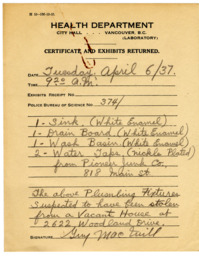 HEALTH DEPARTMENT
CITY HALL VANCOUVER, B.C.
(LABORATORY)
CERTIFICATE AND EXHIBITS RETURNED.
DATE Tuesday, April 6/37.
TIME 9 20 a.m.
EXHIBITS RECEIPT NO.
POLICE BUREAU OF SCIENCE NO. 374/
1 - Sink. (White Enamel)
1 - Drain Board (White Enamel)
1 - Wash Basin (White Enamel)
2 - Water Taps (Nickle Plated)
from Pioneer Junk Co.
818 Main St.
The above Plumbing Fixtures
suspected to have been stolen
from a Vacant House at
2622 Woodland Drive
SIGNATURE Guy